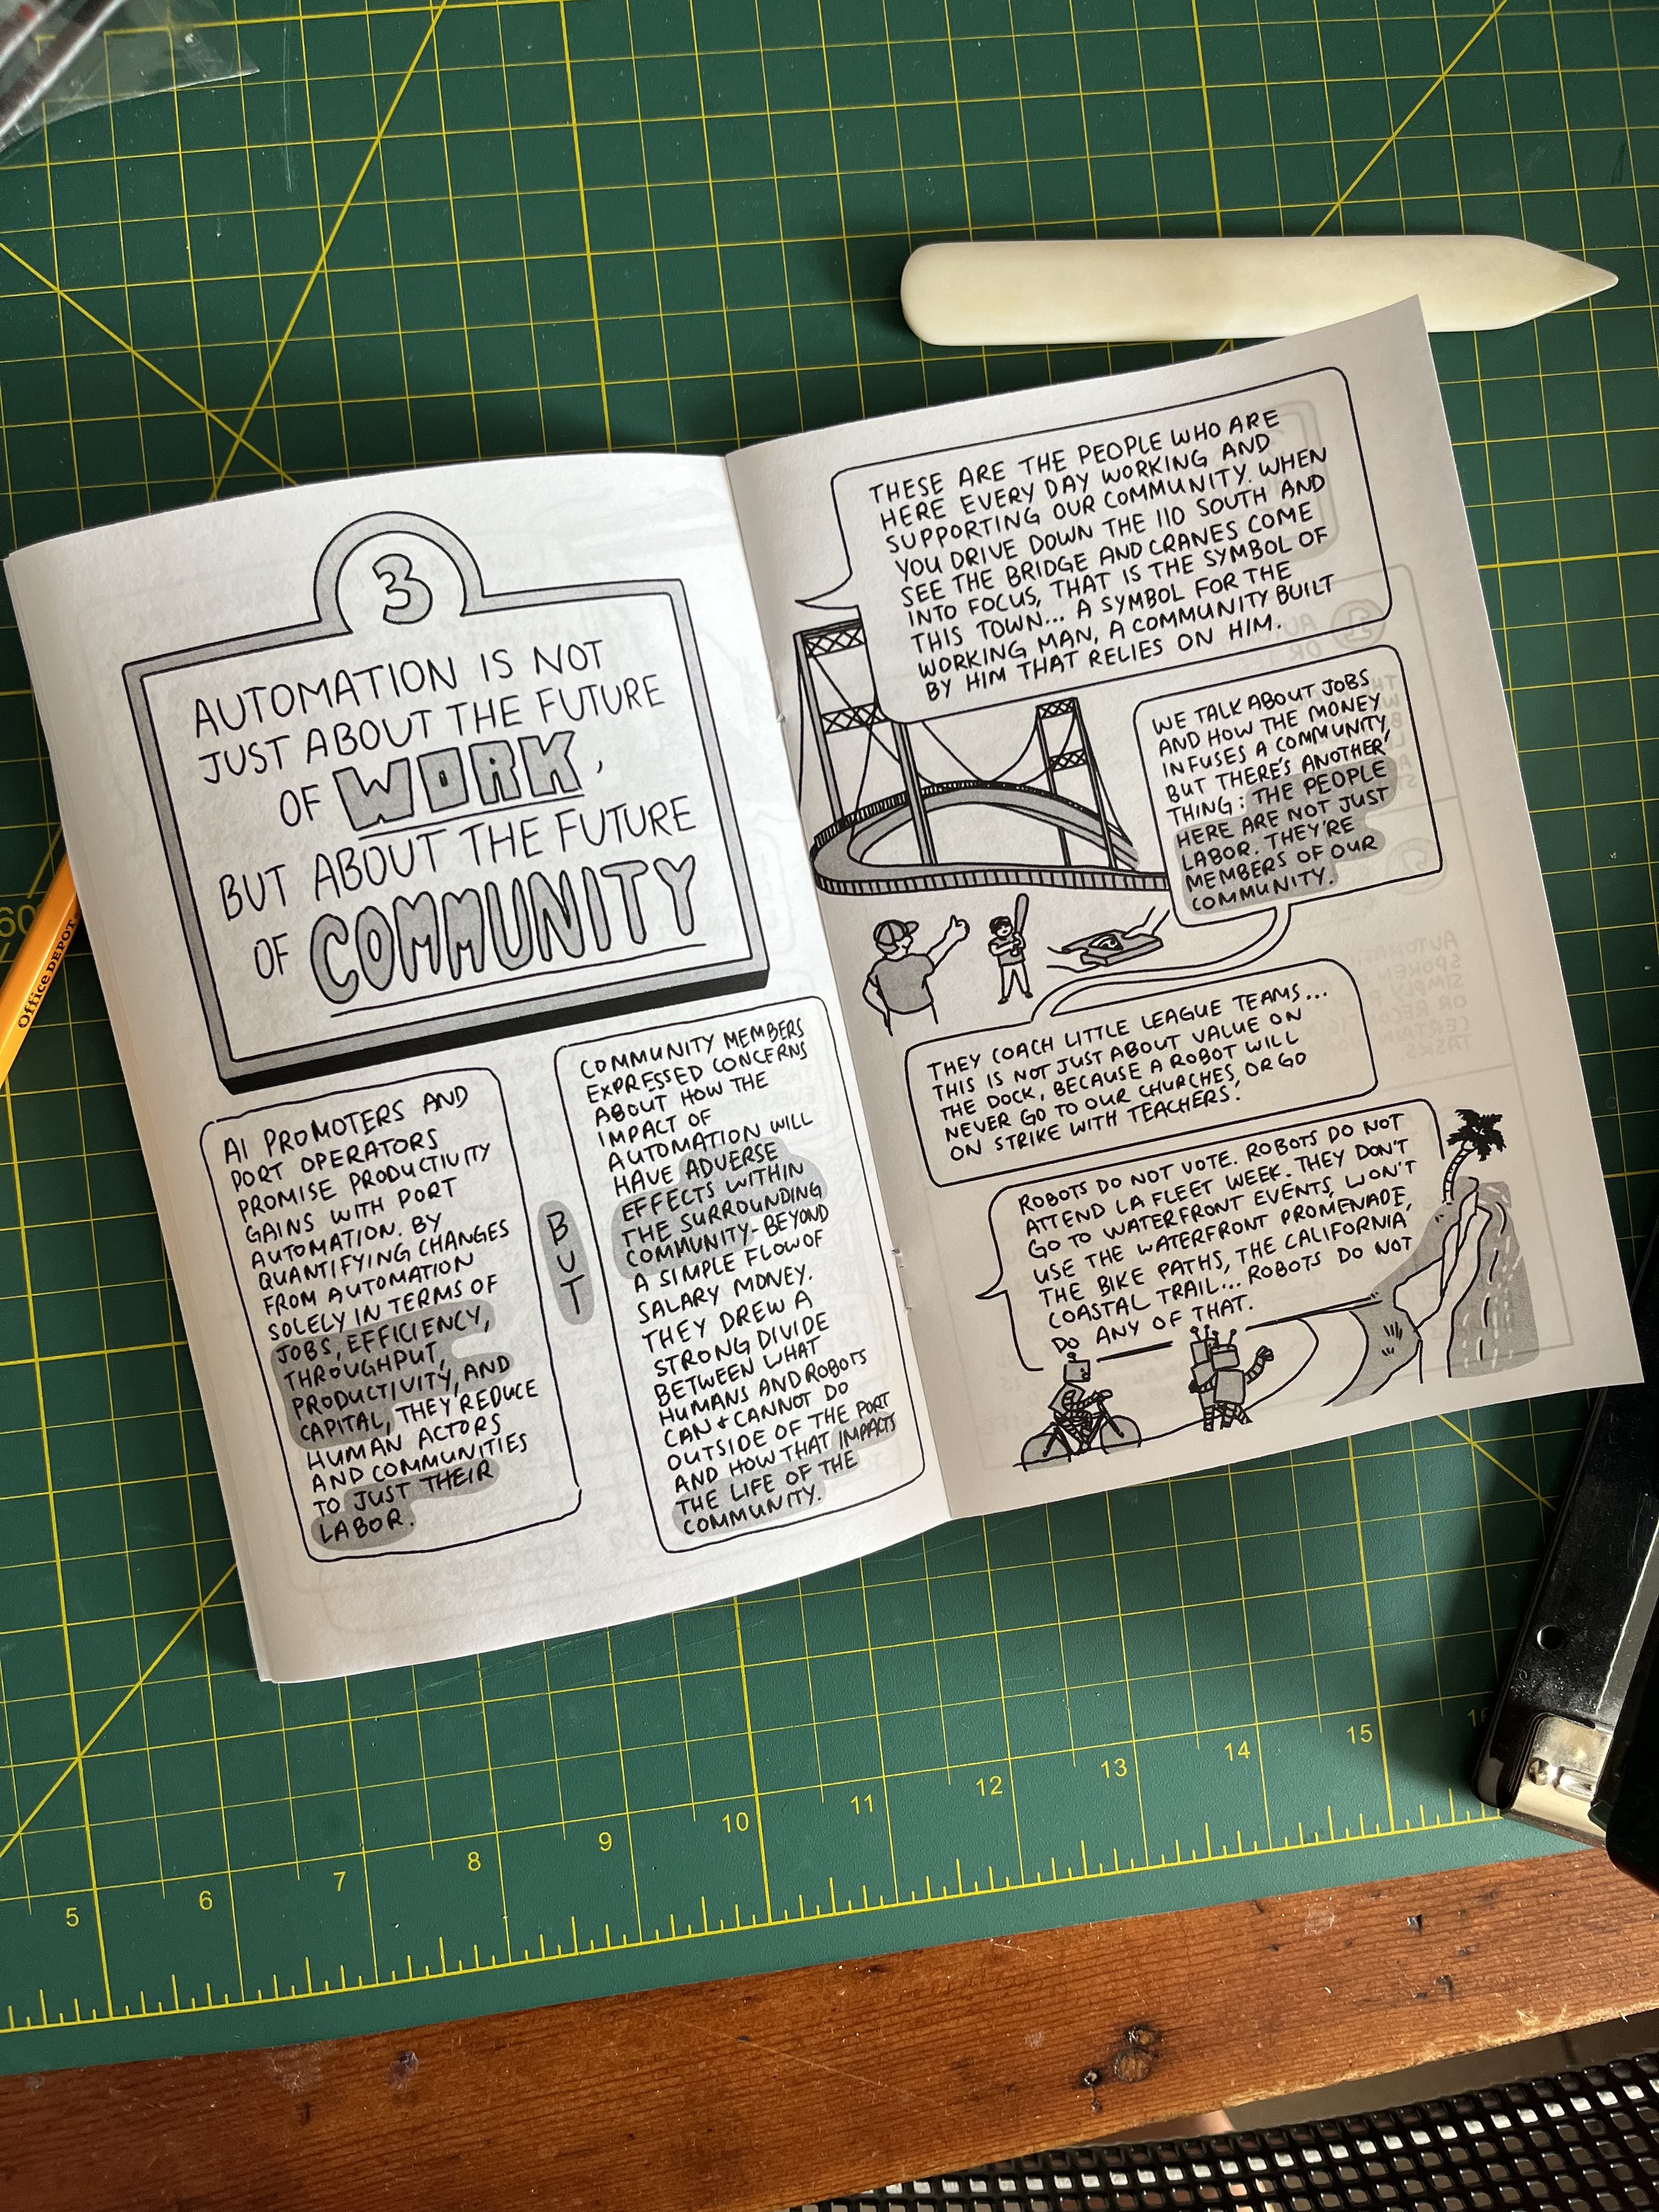 3
AUTOMATION IS NOT
JUST ABOUT THE FUTURE
OF WORK,
BUT ABOUT THE FUTURE
OF COMMUNITY
AI PROMOTERS AND
PORT OPERATORS
PROMISE PRODUCTIVITY
GAINS WITH PORT
AUTOMATION. BY
QUANTIFYING CHANGES
FROM AUTOMATION
SOLELY IN TERMS OF
JOBS, EFFICIENCY,
THROUGHPUT,
PRODUCTIVITY, AND
CAPITAL, THEY REDUCE
HUMAN ACTORS
AND COMMUNITIES
TO JUST THEIR
LABOR.
BUT
COMMUNITY MEMBERS
EXPRESSED CONCERNS
ABOUT HOW THE
IMPACT OF
AUTOMATION WILL
HAVE ADVERSE
EFFECTS WITHIN
THE SURROUNDING
COMMUNITY - BEYOND
A SIMPLE FLOW OF
SALARY MONEY.
THEY DREW A
STRONG DIVIDE
BETWEEN WHAT
HUMANS AND ROBOTS
CAN + CANNOT DO
OUTSIDE OF THE PORT
AND HOW THAT IMPACTS
THE LIFE OF THE
COMMUNITY.
THESE ARE THE PEOPLE WHO ARE
HERE EVERY DAY WORKING AND
SUPPORTING OUR COMMUNITY. WHEN
YOU DRIVE DOWN THE 110 SOUTH AND
SEE THE BRIDGE AND CRANES COME
INTO FOCUS, THAT IS THE SYMBOL OF
THIS TOWN... A SYMBOL FOR THE
WORKING MAN, A COMMUNITY BUILT
BY HIM THAT RELIES ON HIM.
WE TALK ABOUT JOBS
AND HOW THE MONEY
INFUSES A COMMUNITY,
BUT THERE'S ANOTHER
THING: THE PEOPLE
HERE ARE NOT JUST
LABOR. THEY'RE
MEMBERS OF OUR
COMMUNITY.
THEY COACH LITTLE LEAGUE TEAMS...
THIS IS NOT JUST ABOUT VALUE ON
THE DOCK, BECAUSE A ROBOT WILL
NEVER GO TO OUR CHURCHES, OR GO
ON STRIKE WITH TEACHERS.
ROBOTS DO NOT VOTE. ROBOTS DO NOT
ATTEND LA FLEET WEEK. THEY DON'T
GO TO WATERFRONT EVENTS, WON'T
USE THE WATERFRONT PROMENADE,
THE BIKE PATHS, THE CALIFORNIA
COASTAL TRAIL... ROBOTS DO NOT
DO ANY OF THAT.
Office DEPOT
60
5
6
7
8
9
10
11
12
13
14
15